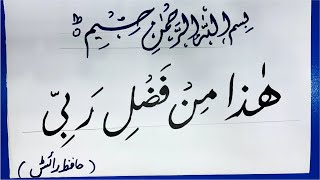 بسم اللہ الرحمٰن حیم
ھٰذا مِنْ فَضْلِ رَبِّیْ
( حافظ رائٹس )